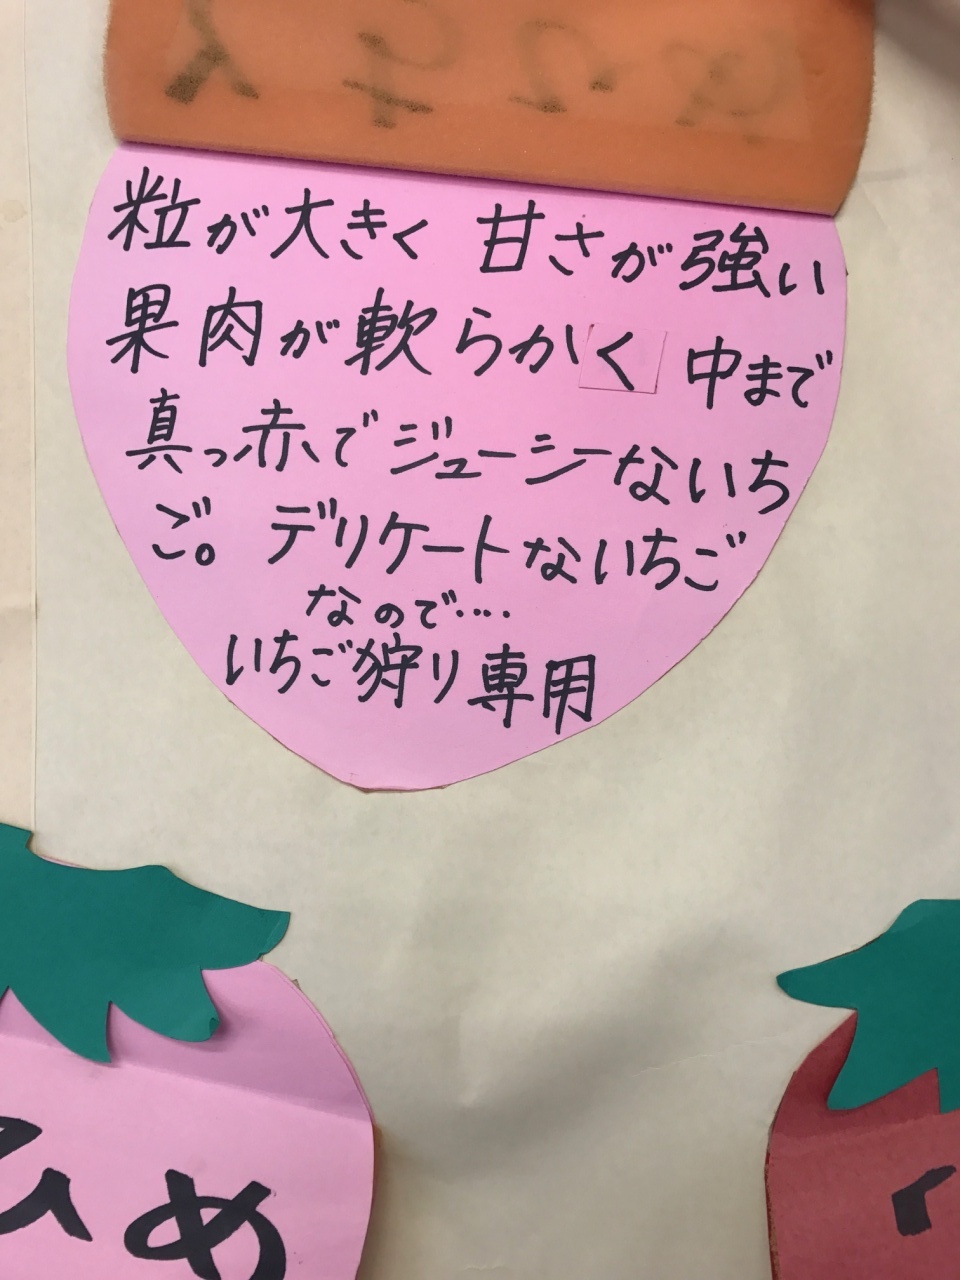 粒が大きく 甘さが強い
果肉が軟らかく 中まで
真っ赤でジューシーないち
ご。 デリケートないちご
なので‥‥
いちご狩り専用
ひめ